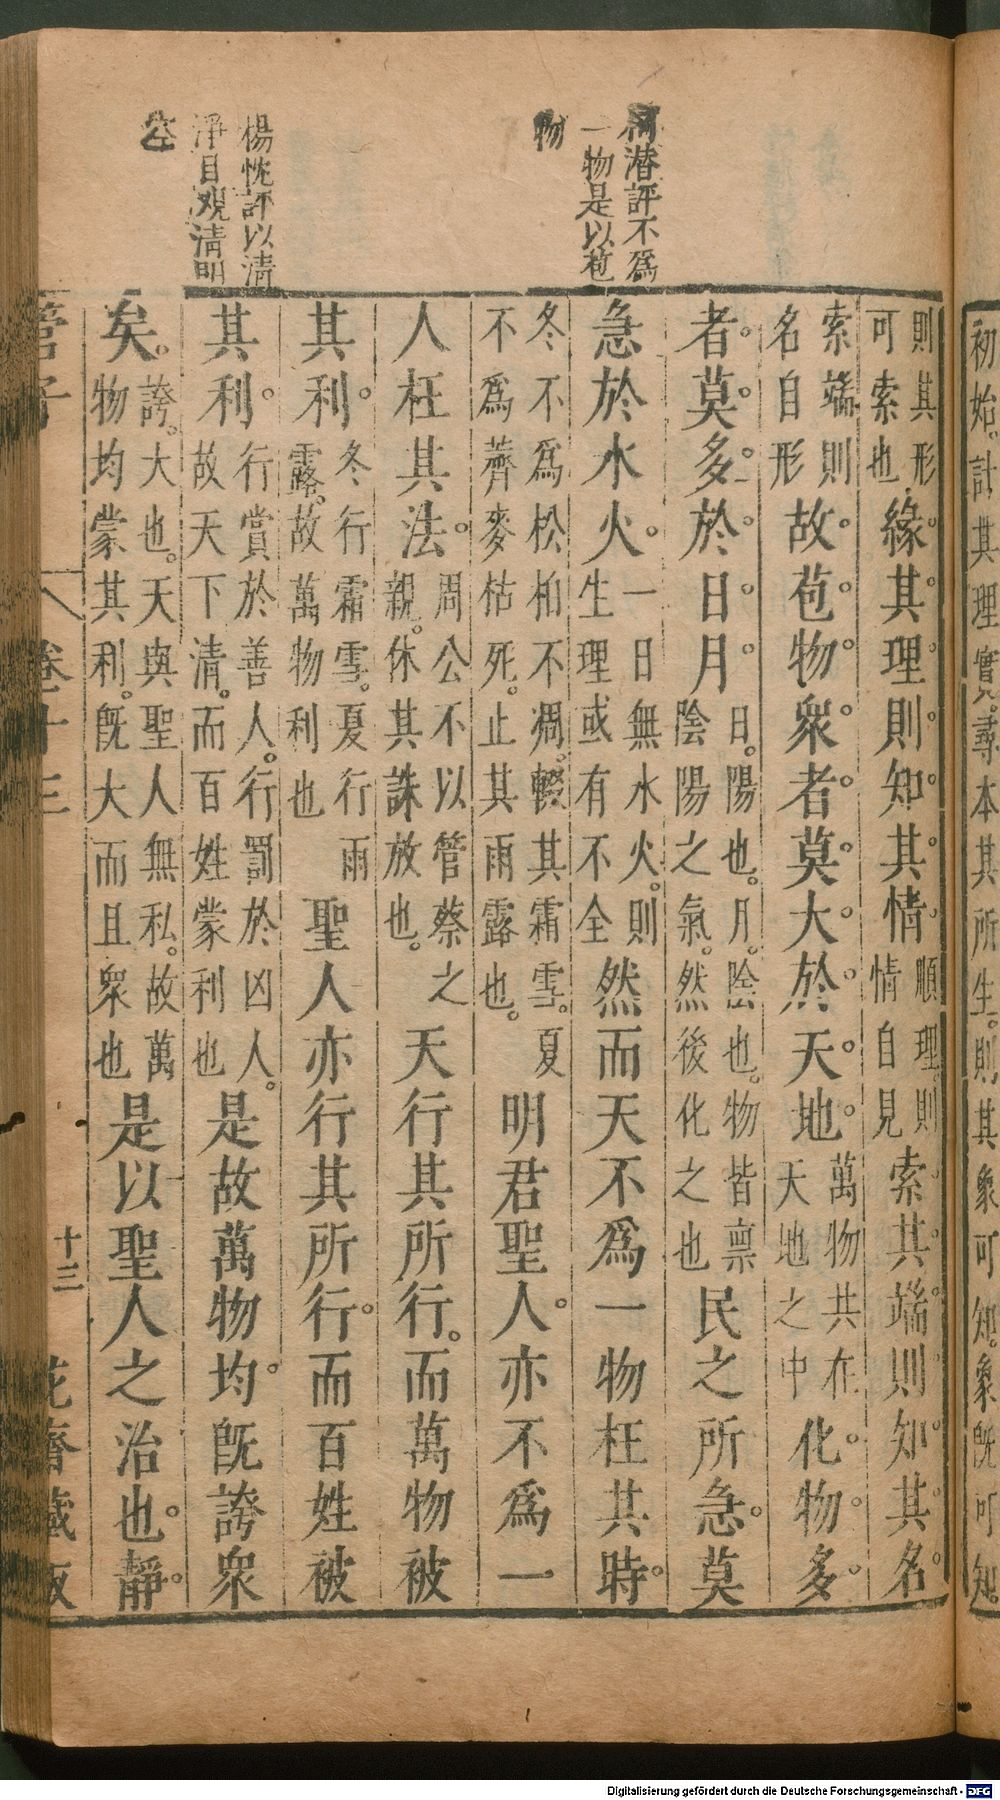 初始。計其理實。尋本其所生。則其象可知。象旣可知。
則其形
可索也
緣其理則知其情
順理。則
情自見
索其端則知其名
索端則
名自形
故苞物衆者莫大於天地
萬物共在
天地之中
化物多
者。莫多於日月
日。陽也。月。陰也。物皆禀
陰陽之氣。然後化之也
民之所急。莫
急於水火。
一日無水火。則
生理或有不全
然而天不爲一物枉其時。
冬不爲松柏不凋。輟其霜雪。夏
不爲薺麥枯死。止其雨露也。
明君聖人。亦不爲一
人枉其法。
周公不以管蔡之
親。休其誅放也。
天行其所行。而萬物被
其利。
冬行霜雪。夏行雨
露。故萬物利也
聖人亦行其所行。而百姓被
其利。
行賞於善人。行罰於凶人。
故天下清。而百姓蒙利也
是故萬物均。旣誇衆
矣。
誇。大也。天與聖人無私。故萬
物均蒙其利。旣大而且衆也
是以聖人之治也。靜。
潛評不爲
一物是以苞
物
楊忱評以清
淨目观清明
管子
卷十三
十三
花齋藏板
Digitalisierung gefördert durch die Deutsche Forschungsgemeinschaft - DFG